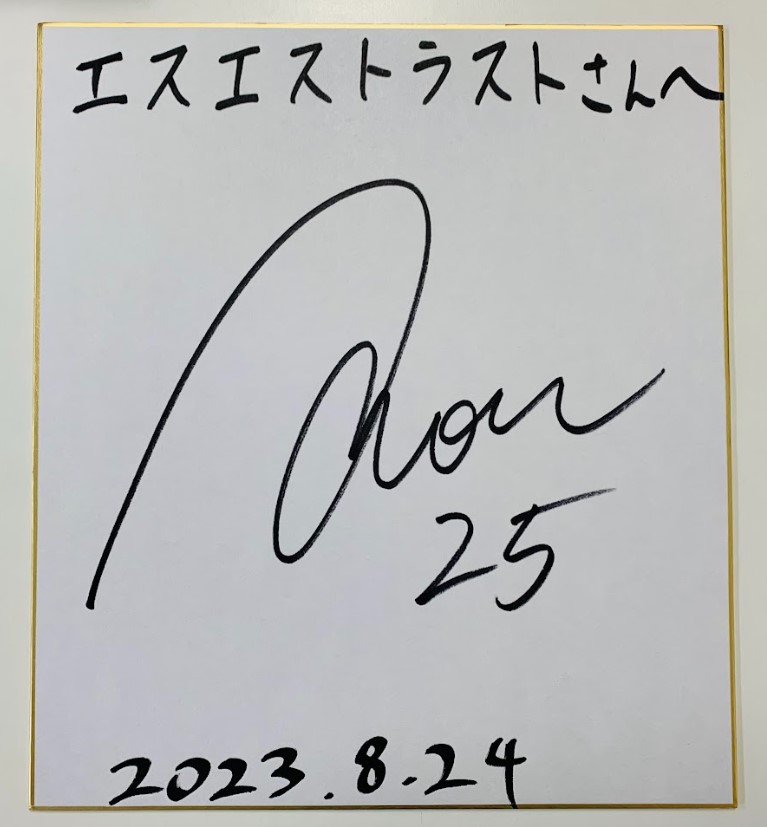 エスエストラストさんへ
25
2023.8.24